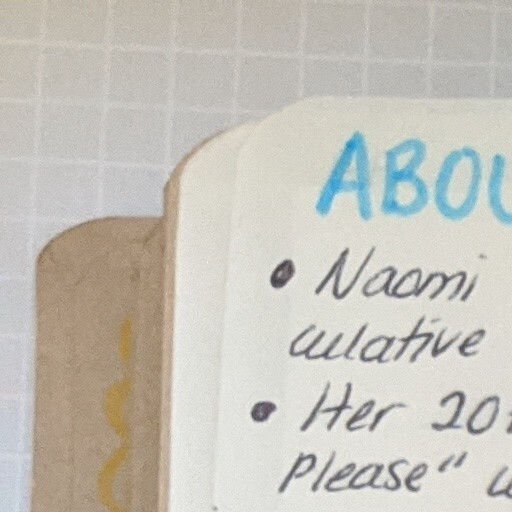 ABOU
• Naomi
culative
• Her 20
Please"